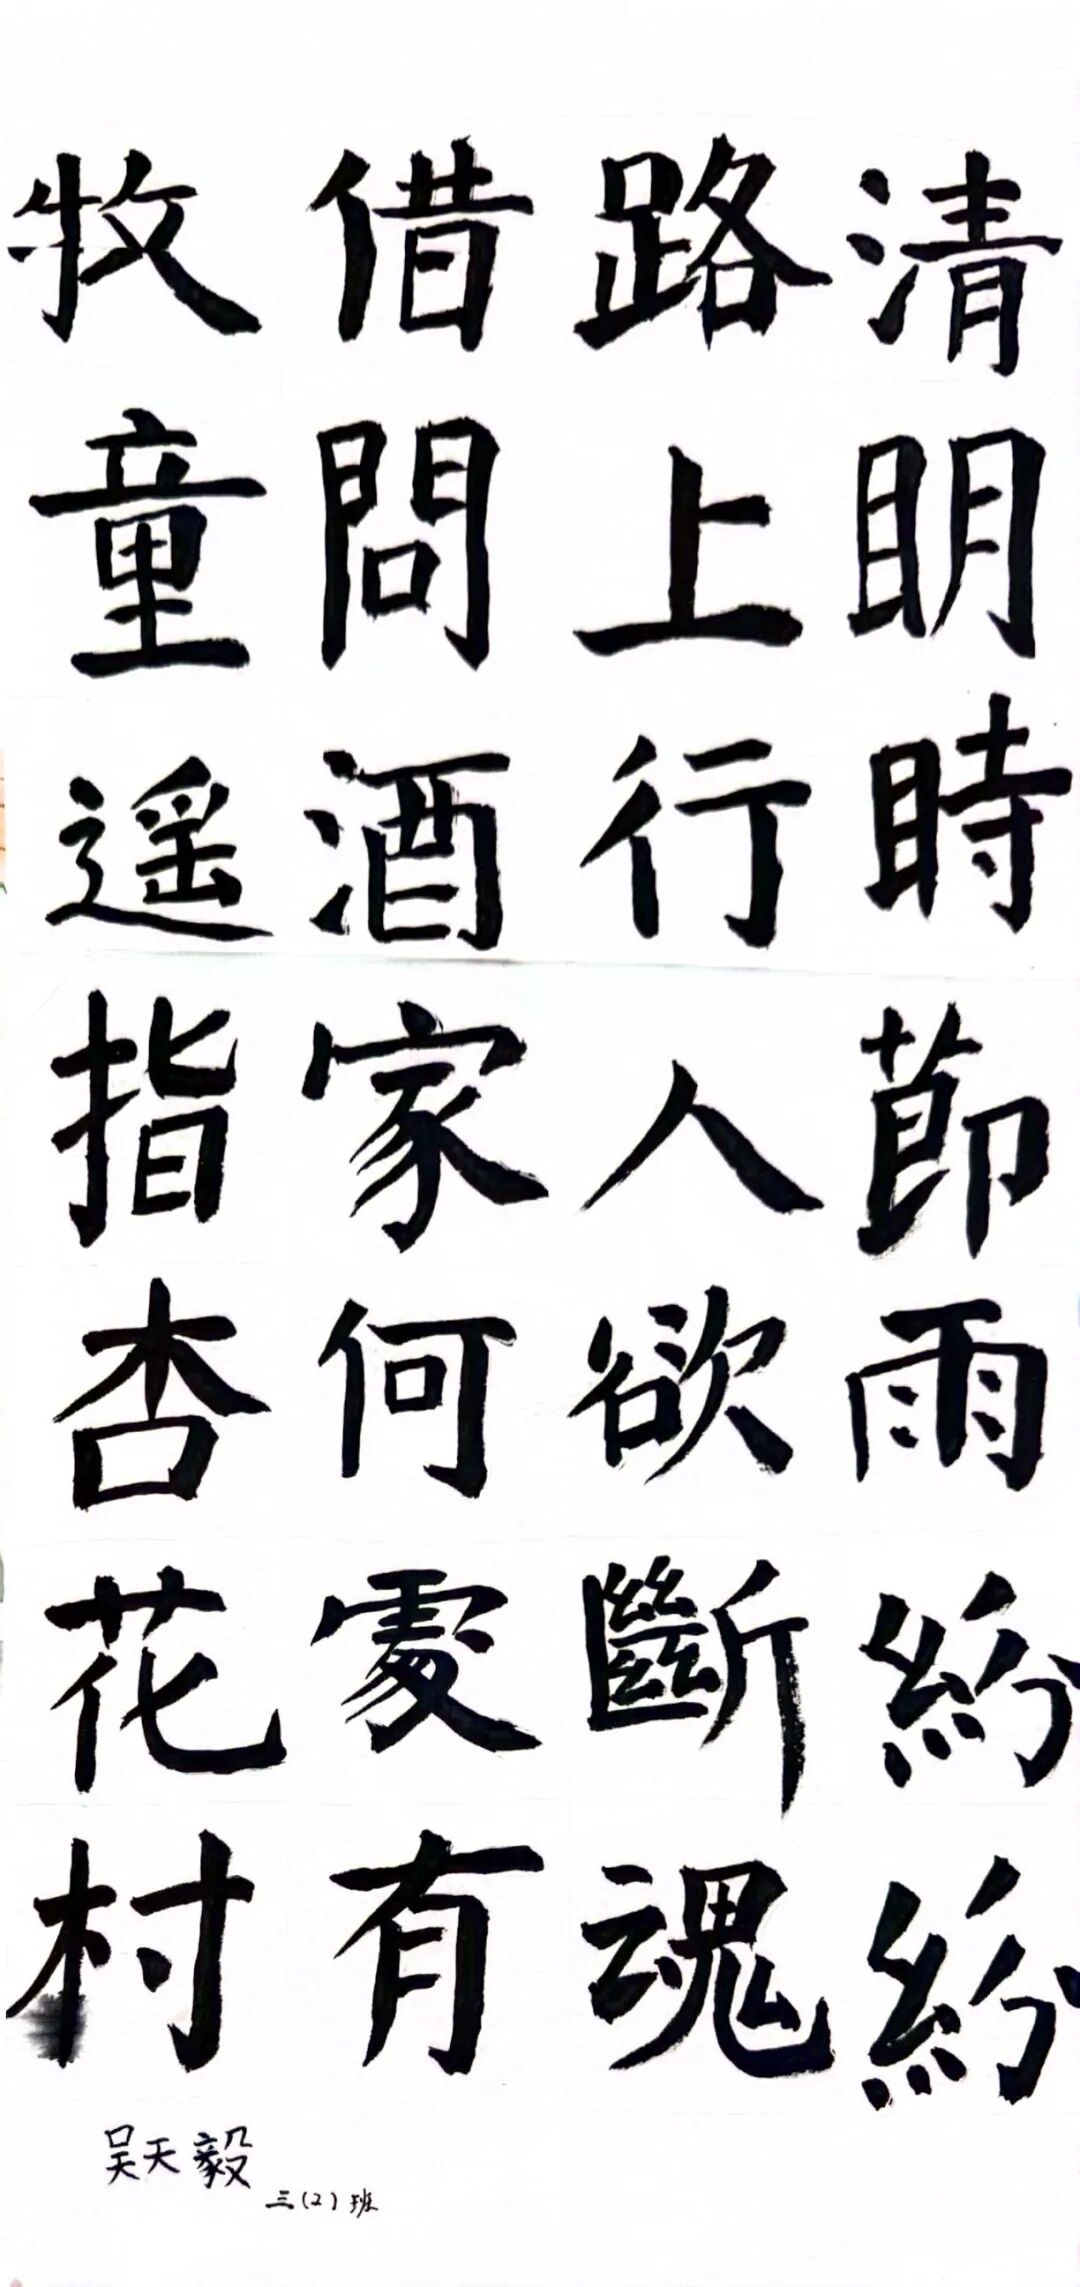 清明時節雨紛紛
路上行人欲斷魂
借問酒家何處有
牧童遥指杏花村
吴天毅
三(2)班